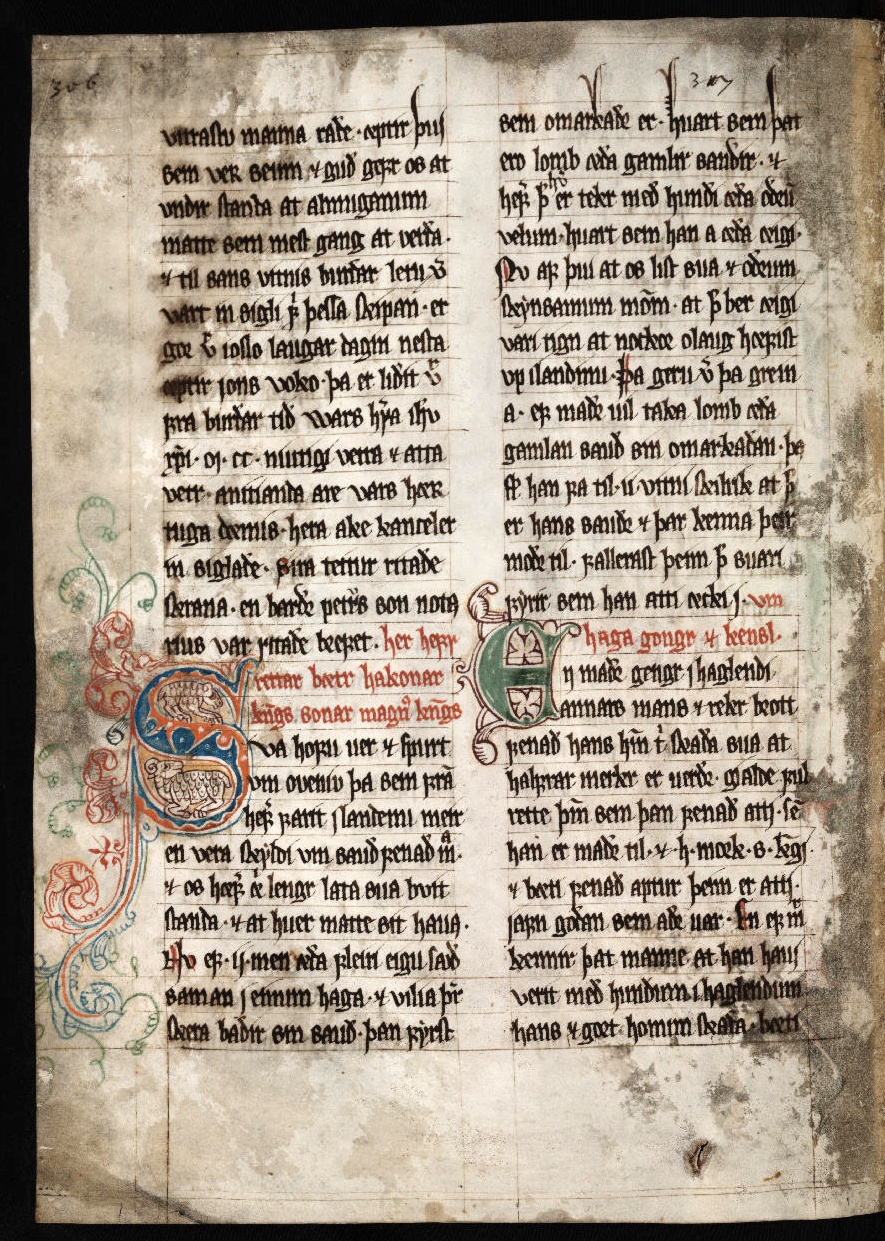 306
307
vitrastu manna rade · æptir þui
sem ver seium ⁊ gud gefr os at
vndir standa at almuganum
matte sem mest gang at verða ·
⁊ til sans vitnis burdar letu v̄
vart in sigli þessa skipan · er
gor v̄ i oslo laugar dagin nesta
æptir jons voko · þa er lidit v̄
fra burdar tid vars hr̄a ih̄u
xp̄i · cc · niutigi vetra ⁊ atta
vetr · a niunda are vars her
tuga doemis · hera ake kanceler
in siglade · sira teitur ritade
skrana · en barðr petr̄s son nota
rius var ritade brefet · her hefr
rettar boetr hakonar
kn̄gs sonar magn̄ kn̄gs
Sva hofū ver ⁊ spurt
vm oveniv þa sem frā
hefr farit jslandemi meir
en vera skyldi vm saud fenad m̄ ·
⁊ os hoefr æi lengr lata sua buit
standa · ⁊ at huer matte sit haua ·
Nv ef · ij · men æða fleiri eigu saud
saman j einum haga · ⁊ vilia þr̄
skera badir sin saud · þan fyrst
sem omarkade er · huart sem þat
ero lomb æða gamlir saudir · ⁊
hefr þ̄ er teker med hundi æða odrū
velum · huart sem han a æða æigi ·
Nv af þui at os list sua ⁊ odrum
skynsamum mōm · at þ̄ ber æigi
vari tign at nockoe olaug hoefist
vp islandinu · þa geru v̄ þa grein
a · ef made uil taka lomb æða
gamlan saud sin omarkadan · þa
sk̄ han fa til · ii · vitni skilrik at þ̄
er hans saude ⁊ þar kenna þeir
mode til · fallerast þeim þ̄ suari
fyrir sem han atti ækki j · vm
haga gongr ⁊ kensl ·
En made gengr j haglendi
annars mans ⁊ reker brott
fenad hans hm̄ t̄ skada sua at
halfrar merker er uerde · gialde ful
rette þm̄ sem þan fenad atti · sē
han er made til · ⁊ · h · mork · s · kn̄gi
⁊ boeti fenad aptur þeim er atti ·
jafn godan sem ade uar · En ef m̄
kennir þat manne at han haui
verit med hundum i haglendum
hans ⁊ goet homim skada · boeti